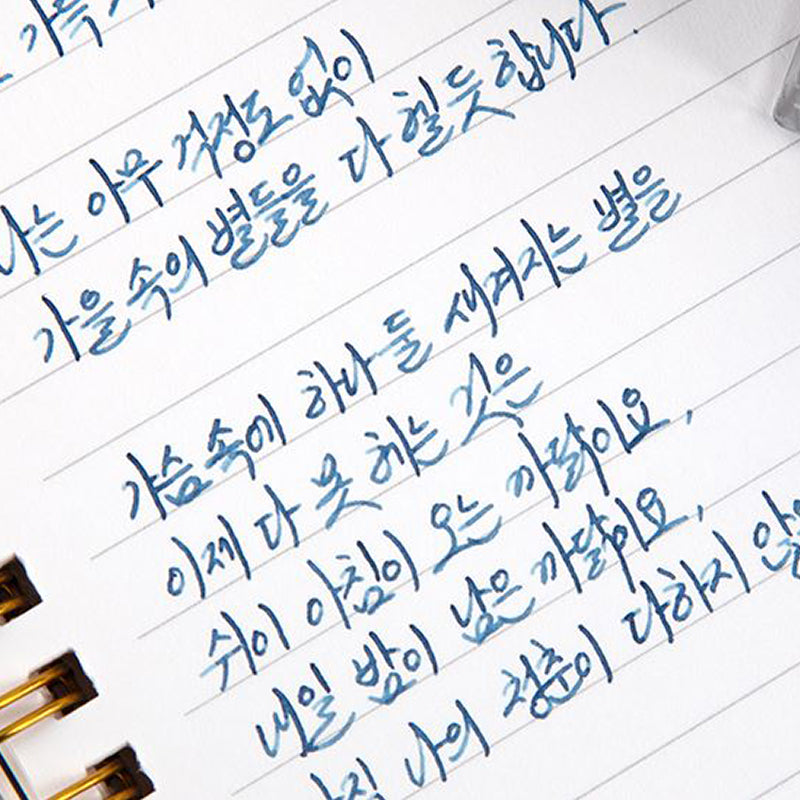 가득
나는 아무 걱정도 없이
가을 속의 별들을 다 헬듯합니다.
가슴속에 하나 둘 새겨지는 별을
이제 다 못 헤는 것은
쉬이 아침이 오는 까닭이요,
내일 밤이 남은 까닭이요,
아직 나의 청춘이 다하지 않